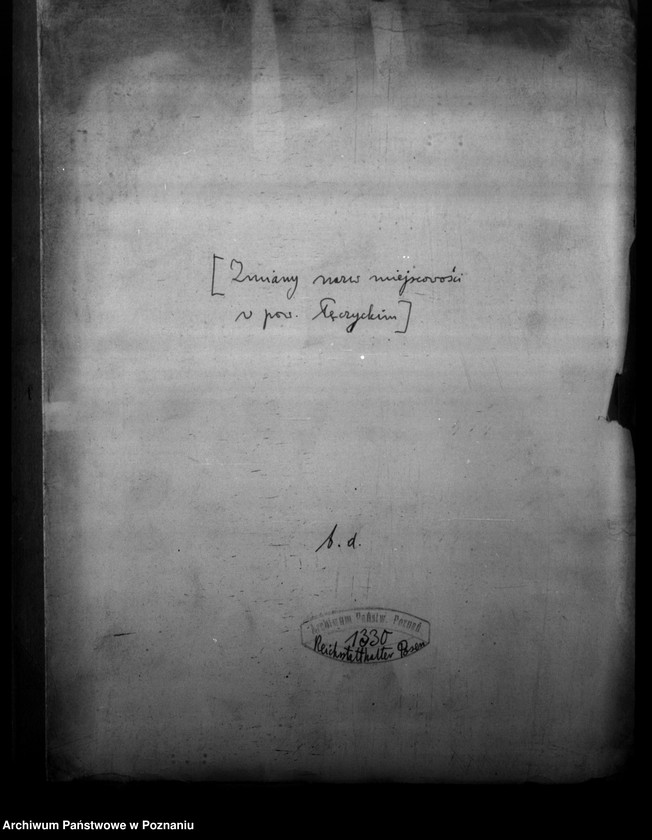 [Zmiany nazw miejscowości
w pow. Łęczyckim]
b. d.
Archiwum Państw. Poznań
1330
Reichsstatthalter Posen
Archiwum Państwowe w Poznaniu